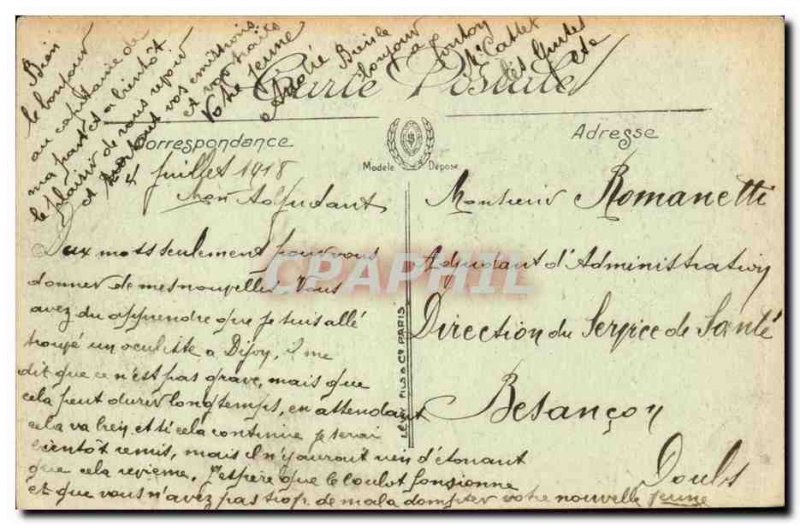 Carte Postale
Correspondance
Adresse
Modèle Déposé
LÉVY FILS & Cie PARIS
CPAPHIL
4 Juillet 1918
Mon Adjudant
Deux mots seulement pour vous
donner de mes nouvelles. Vous
avez du apprendre que je suis allé
trouvé un oculiste a Dijon, il me
dit que ce n'est pas grave, mais que
cela peut durer longtemps, en attendant
cela va bien et si cela continue je serai
bientôt remis, mais il n'y aurait rien d'étonant
que cela revienne. J'espère que le boulot fonsionne
et que vous n'avez pas trop de mal a dompter votre nouvelle jeune
Bien
le bonjour
au capitaine de
ma part et a bientôt
le plaisir de vous revoir
et surtout vos émissions
et vos traits
Votre jeune
André
bonjour a
Mr Cattet
les
Monsieur Romanetti
Adjudant d'Administration
Direction du Service de Santé
Besançon
Doubs